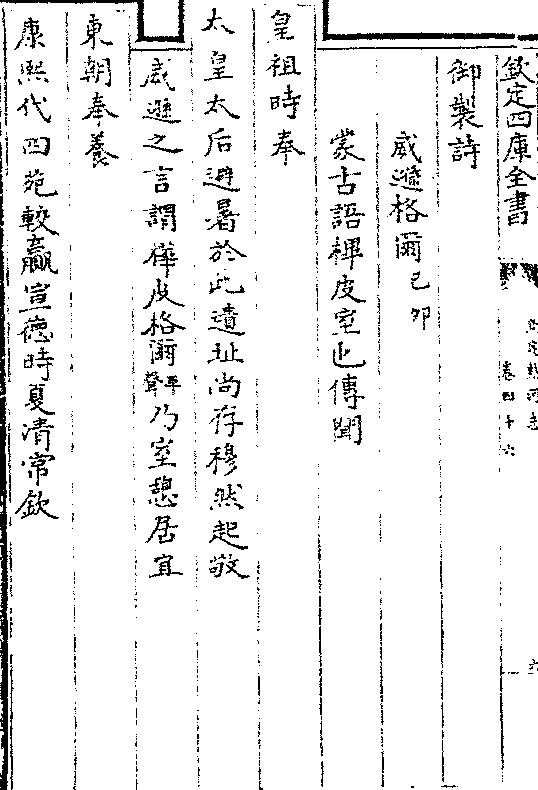 欽定四庫全書
欽定熱河志
卷四十六
六
御製詩
威遜格爾己卯
蒙古語樺皮室也傳聞
皇祖時奉
太皇太后避暑於此遺址尚存穆然起敬
威遜之言謂樺皮格爾平聲乃室憩居宜
東朝奉養
康熙代四苑較贏宣德時夏清常欽